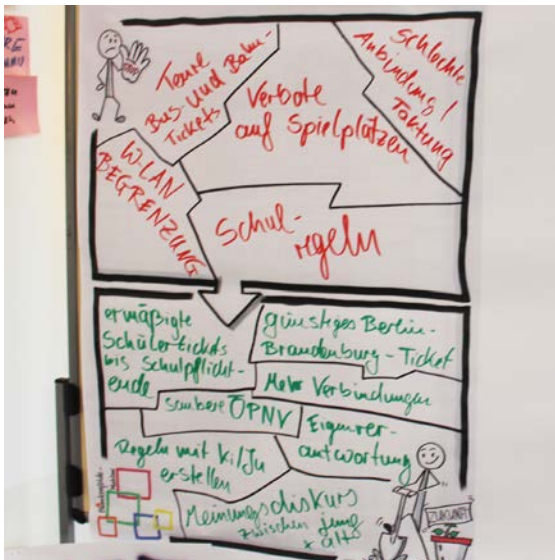 STOP
Teure
Bus- und Bahn-
Tickets
Verbote
auf Spielplätzen
Schlechte
Anbindung /
Taktung
WLAN
BEGRENZUNG
Schul-
regeln
ermäßigte
Schülertickets
bis Schulpflicht-
ende
günstiges Berlin-
Brandenburg-Ticket
Mehr Verbindungen
saubere ÖPNV
Eigenver-
antwortung
Regeln mit Ki/Ju
erstellen
Meinungsdiskurs
zwischen jung
+ alt
ZUKUNFT